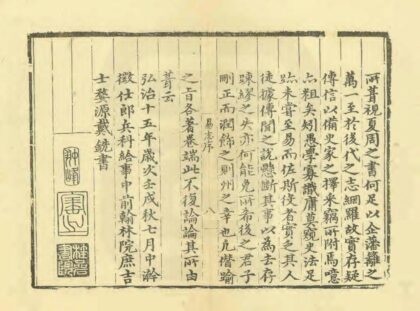 所葺視夏周之書何足以企藩籬之
萬一至於後代之志網羅故實存疑
傳信以備史家之擇來竊所附焉噫
亦粗矣矧愚學寡識庸莫窺史法足
跡未嘗至易而佐斯役者實乏其人
徒據傳聞之說懸斷其事以為去存
踈繆之失亦何能免所希後之君子
剛正而潤飾之則州之幸也凢僭踰
易志序
八
之旨各著卷端此不復論論其所由
葺云
弘治十五年歲次壬戌秋七月中澣
徵仕郎兵科給事中前翰林院庶吉
士婺源戴銑書